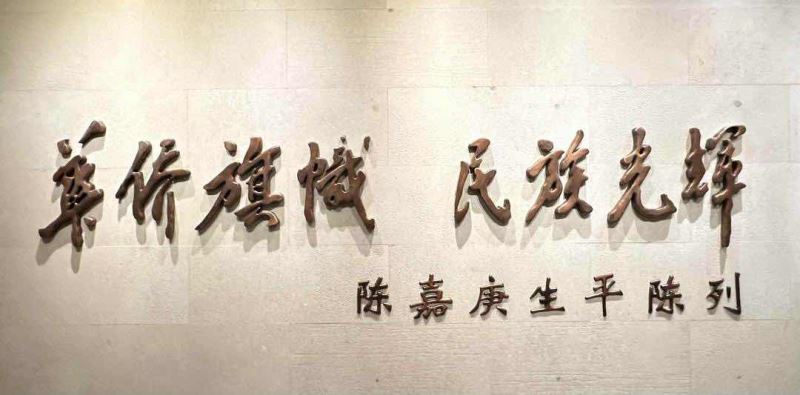 華侨旗幟 民族光輝
陈嘉庚生平陈列